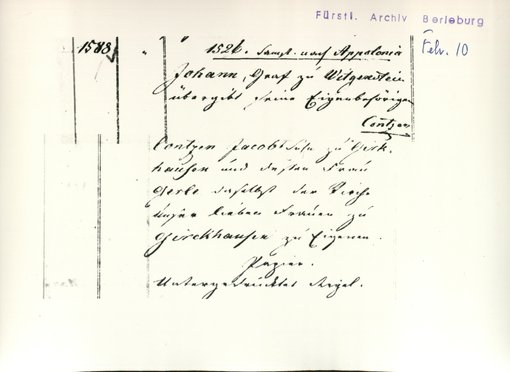 Fürstl. Archiv Berleburg
Febr. 10
1583
1526. Sampt. nach Appolonia
Johann, Graf zu Witgenstein
übergibt seine Eigenbehörigen
Contzen
Contzen Jacobs Sohn zu Girk-
hausen und dessen Frau
daselbst der Kirche
unser lieben Frauen zu
Girckhausen zu Eigenen.
Papier.
Untergedrücktes Siegel.